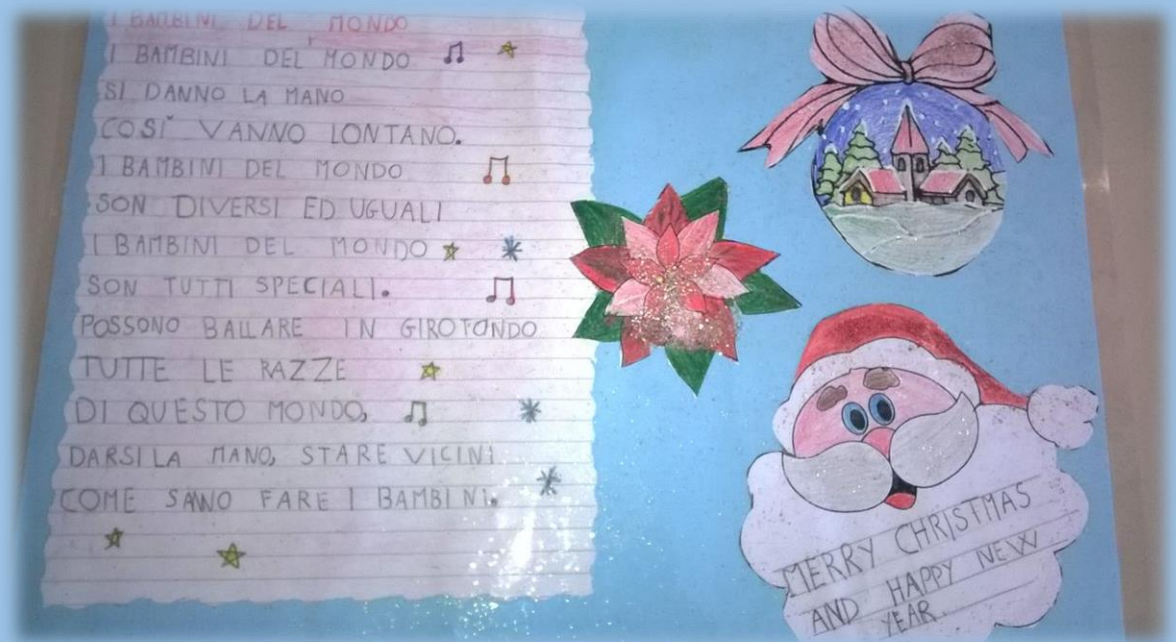 I BAMBINI DEL MONDO
I BAMBINI DEL MONDO
SI DANNO LA MANO
COSÌ VANNO LONTANO.
I BAMBINI DEL MONDO
SON DIVERSI ED UGUALI
I BAMBINI DEL MONDO
SON TUTTI SPECIALI.
POSSONO BALLARE IN GIROTONDO
TUTTE LE RAZZE
DI QUESTO MONDO,
DARSI LA MANO, STARE VICINI
COME SANNO FARE I BAMBINI.
MERRY CHRISTMAS
AND HAPPY NEW
YEAR